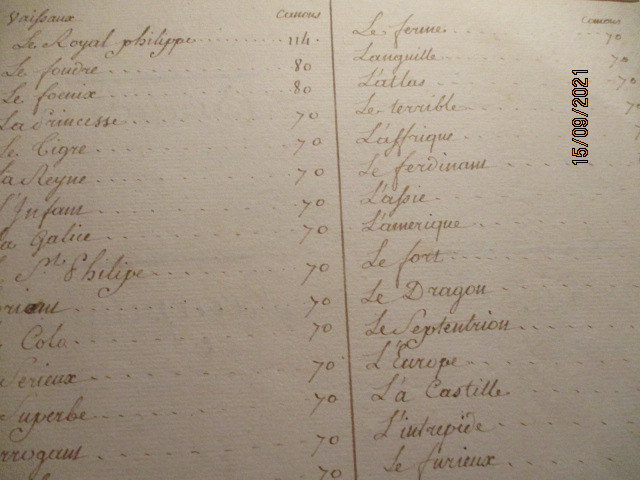 Vaissaux Canons
Le Royal philippe 114.
Le foudre 80
Le foenix 80
La Princesse 70
Le Tigre 70
La Reyne 70
L'Infant 70
La Galice 70
St Philipe 70
orient 70
Cola 70
Serieux 70
Superbe 70
rrogant 70
70
Canons
Le ferme 70
Languille 70
L'atlas 70
Le terrible 7
L'affrique
Le ferdinant
L'assie
L'amerique
Le fort
Le Dragon
Le Septentrion
L'Europe
L'a Castille
L'intrepide
Le furieux
15/09/2021